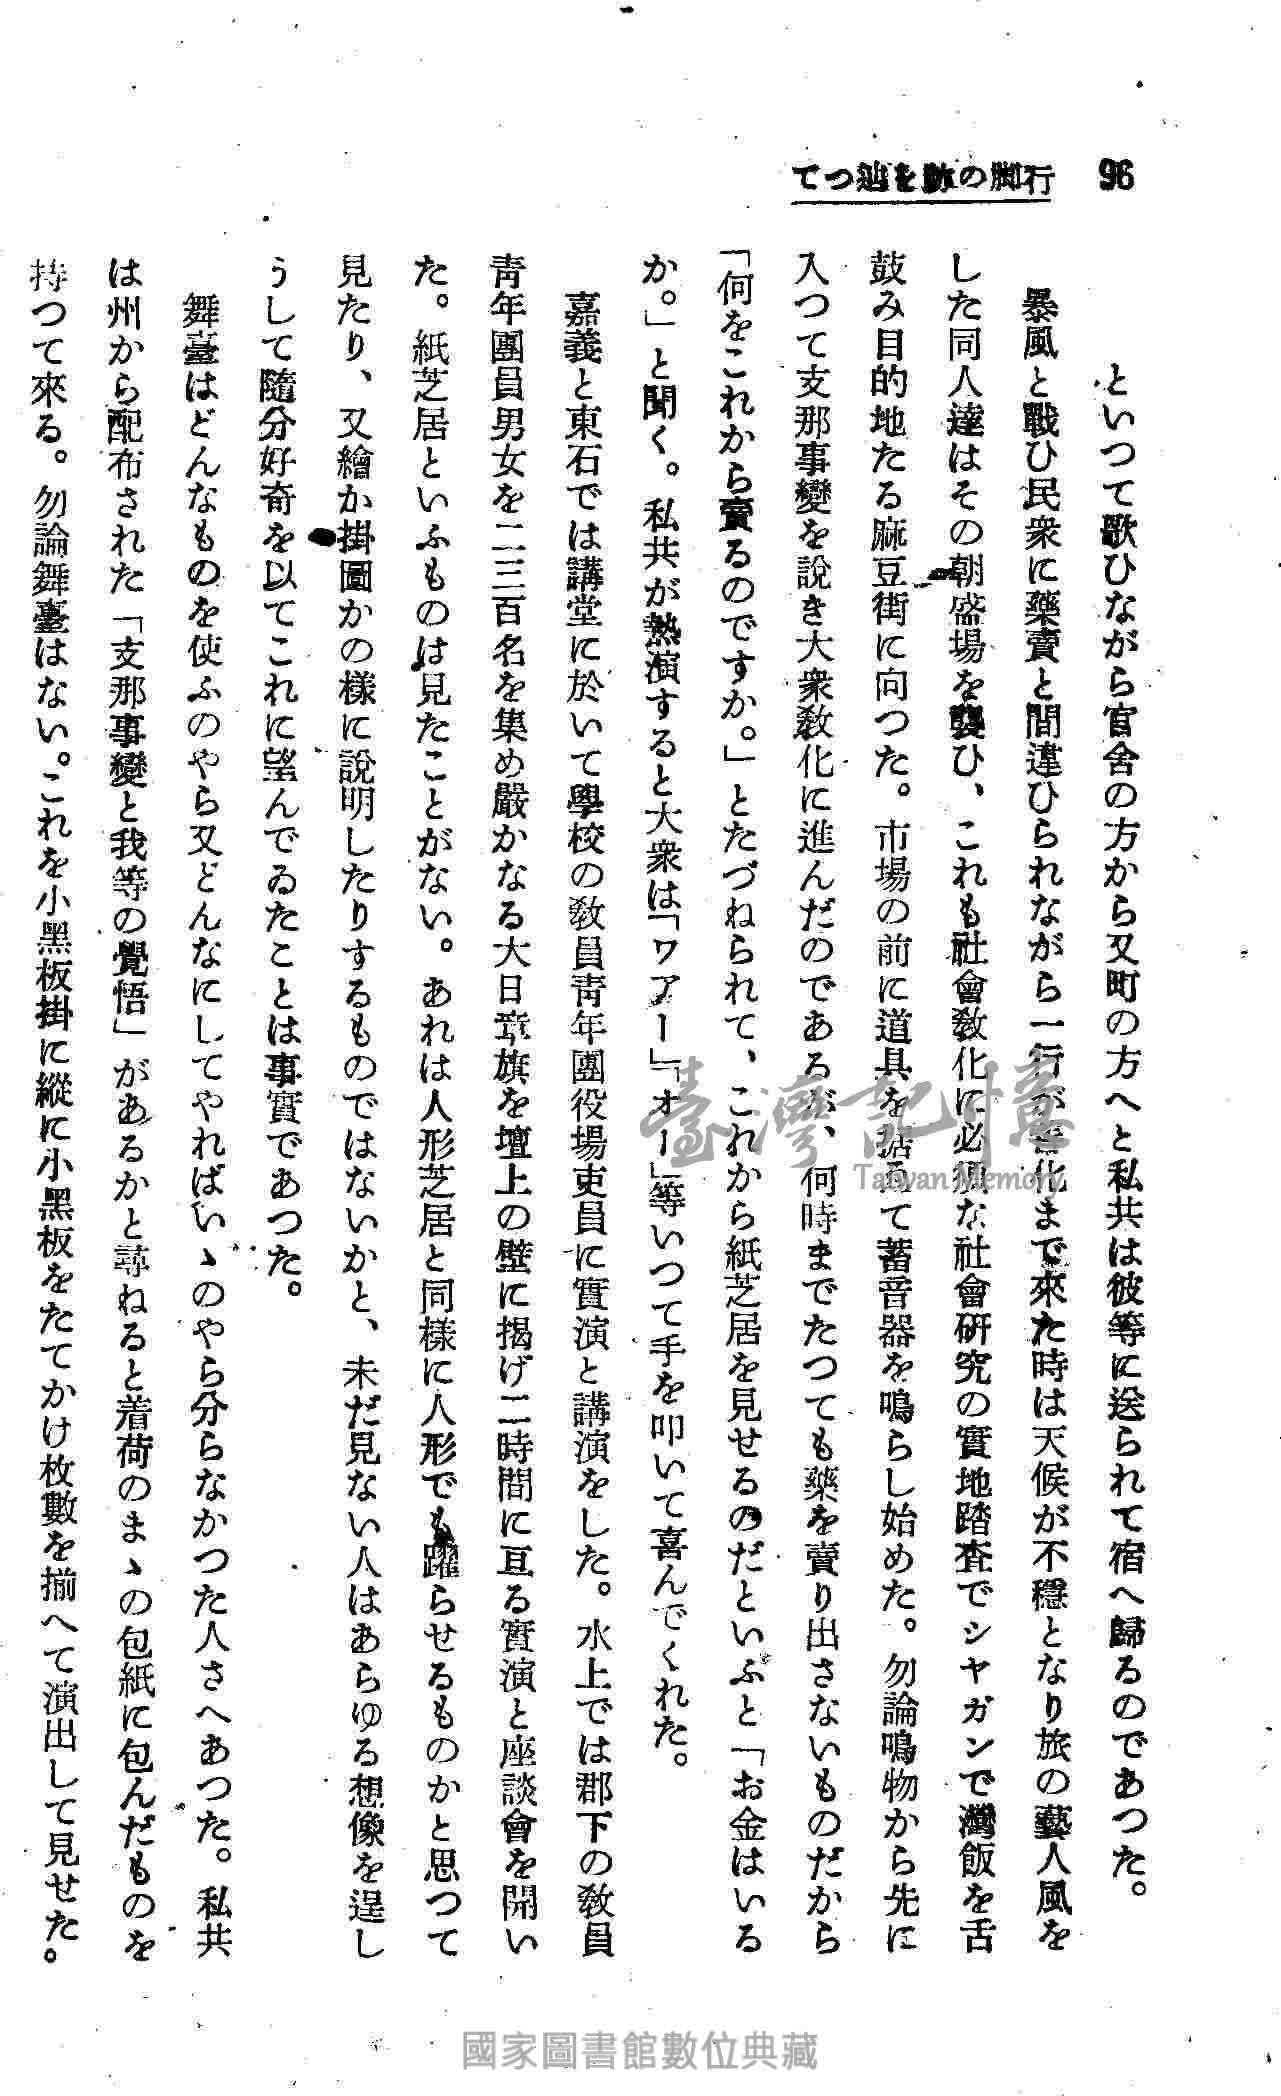 96
行脚の跡を辿つて
といつて歌ひながら官舎の方から又町の方へと私共は彼等に送られて宿へ歸るのであつた。
暴風と戰ひ民衆に藥賣と間違ひられながら一行が善化まで來た時は天候が不穩となり旅の藝人風を
した同人達はその朝盛場を襲ひ、これも社會敎化に必須な社會硏究の實地踏査でシヤガンで灣飯を舌
鼓み目的地たる麻豆街に向つた。市場の前に道具を据ゑて蓄音器を鳴らし始めた。勿論鳴物から先に
入つて支那事變を說き大衆敎化に進んだのであるが、何時までたつても藥を賣り出さないものだから
「何をこれから賣るのですか。」とたづねられて、これから紙芝居を見せるのだといふと「お金はいる
か。」と聞く。私共が熱演すると大衆は「ワアー」「オー」等いつて手を叩いて喜んでくれた。
嘉義と東石では講堂に於いて學校の敎員靑年團役場吏員に實演と講演をした。水上では郡下の敎員
靑年團員男女を二三百名を集め嚴かなる大日章旗を壇上の壁に揭げ二時間に亘る實演と座談會を開い
た。紙芝居といふものは見たことがない。あれは人形芝居と同樣に人形でも躍らせるものかと思つて
見たり、又繪か掛圖かの樣に說明したりするものではないかと、未だ見ない人はあらゆる想像を逞し
うして隨分好奇を以てこれに望んでゐたことは事實であつた。
舞臺はどんなものを使ふのやら又どんなにしてやればいゝのやら分らなかつた人さへあつた。私共
は州から配布された「支那事變と我等の覺悟」があるかと尋ねると着荷のまゝの包紙に包んだものを
持つて來る。勿論舞臺はない。これを小黑板掛に縱に小黑板をたてかけ枚數を揃へて演出して見せた。
臺灣記憶
Taiwan Memory
國家圖書館數位典藏